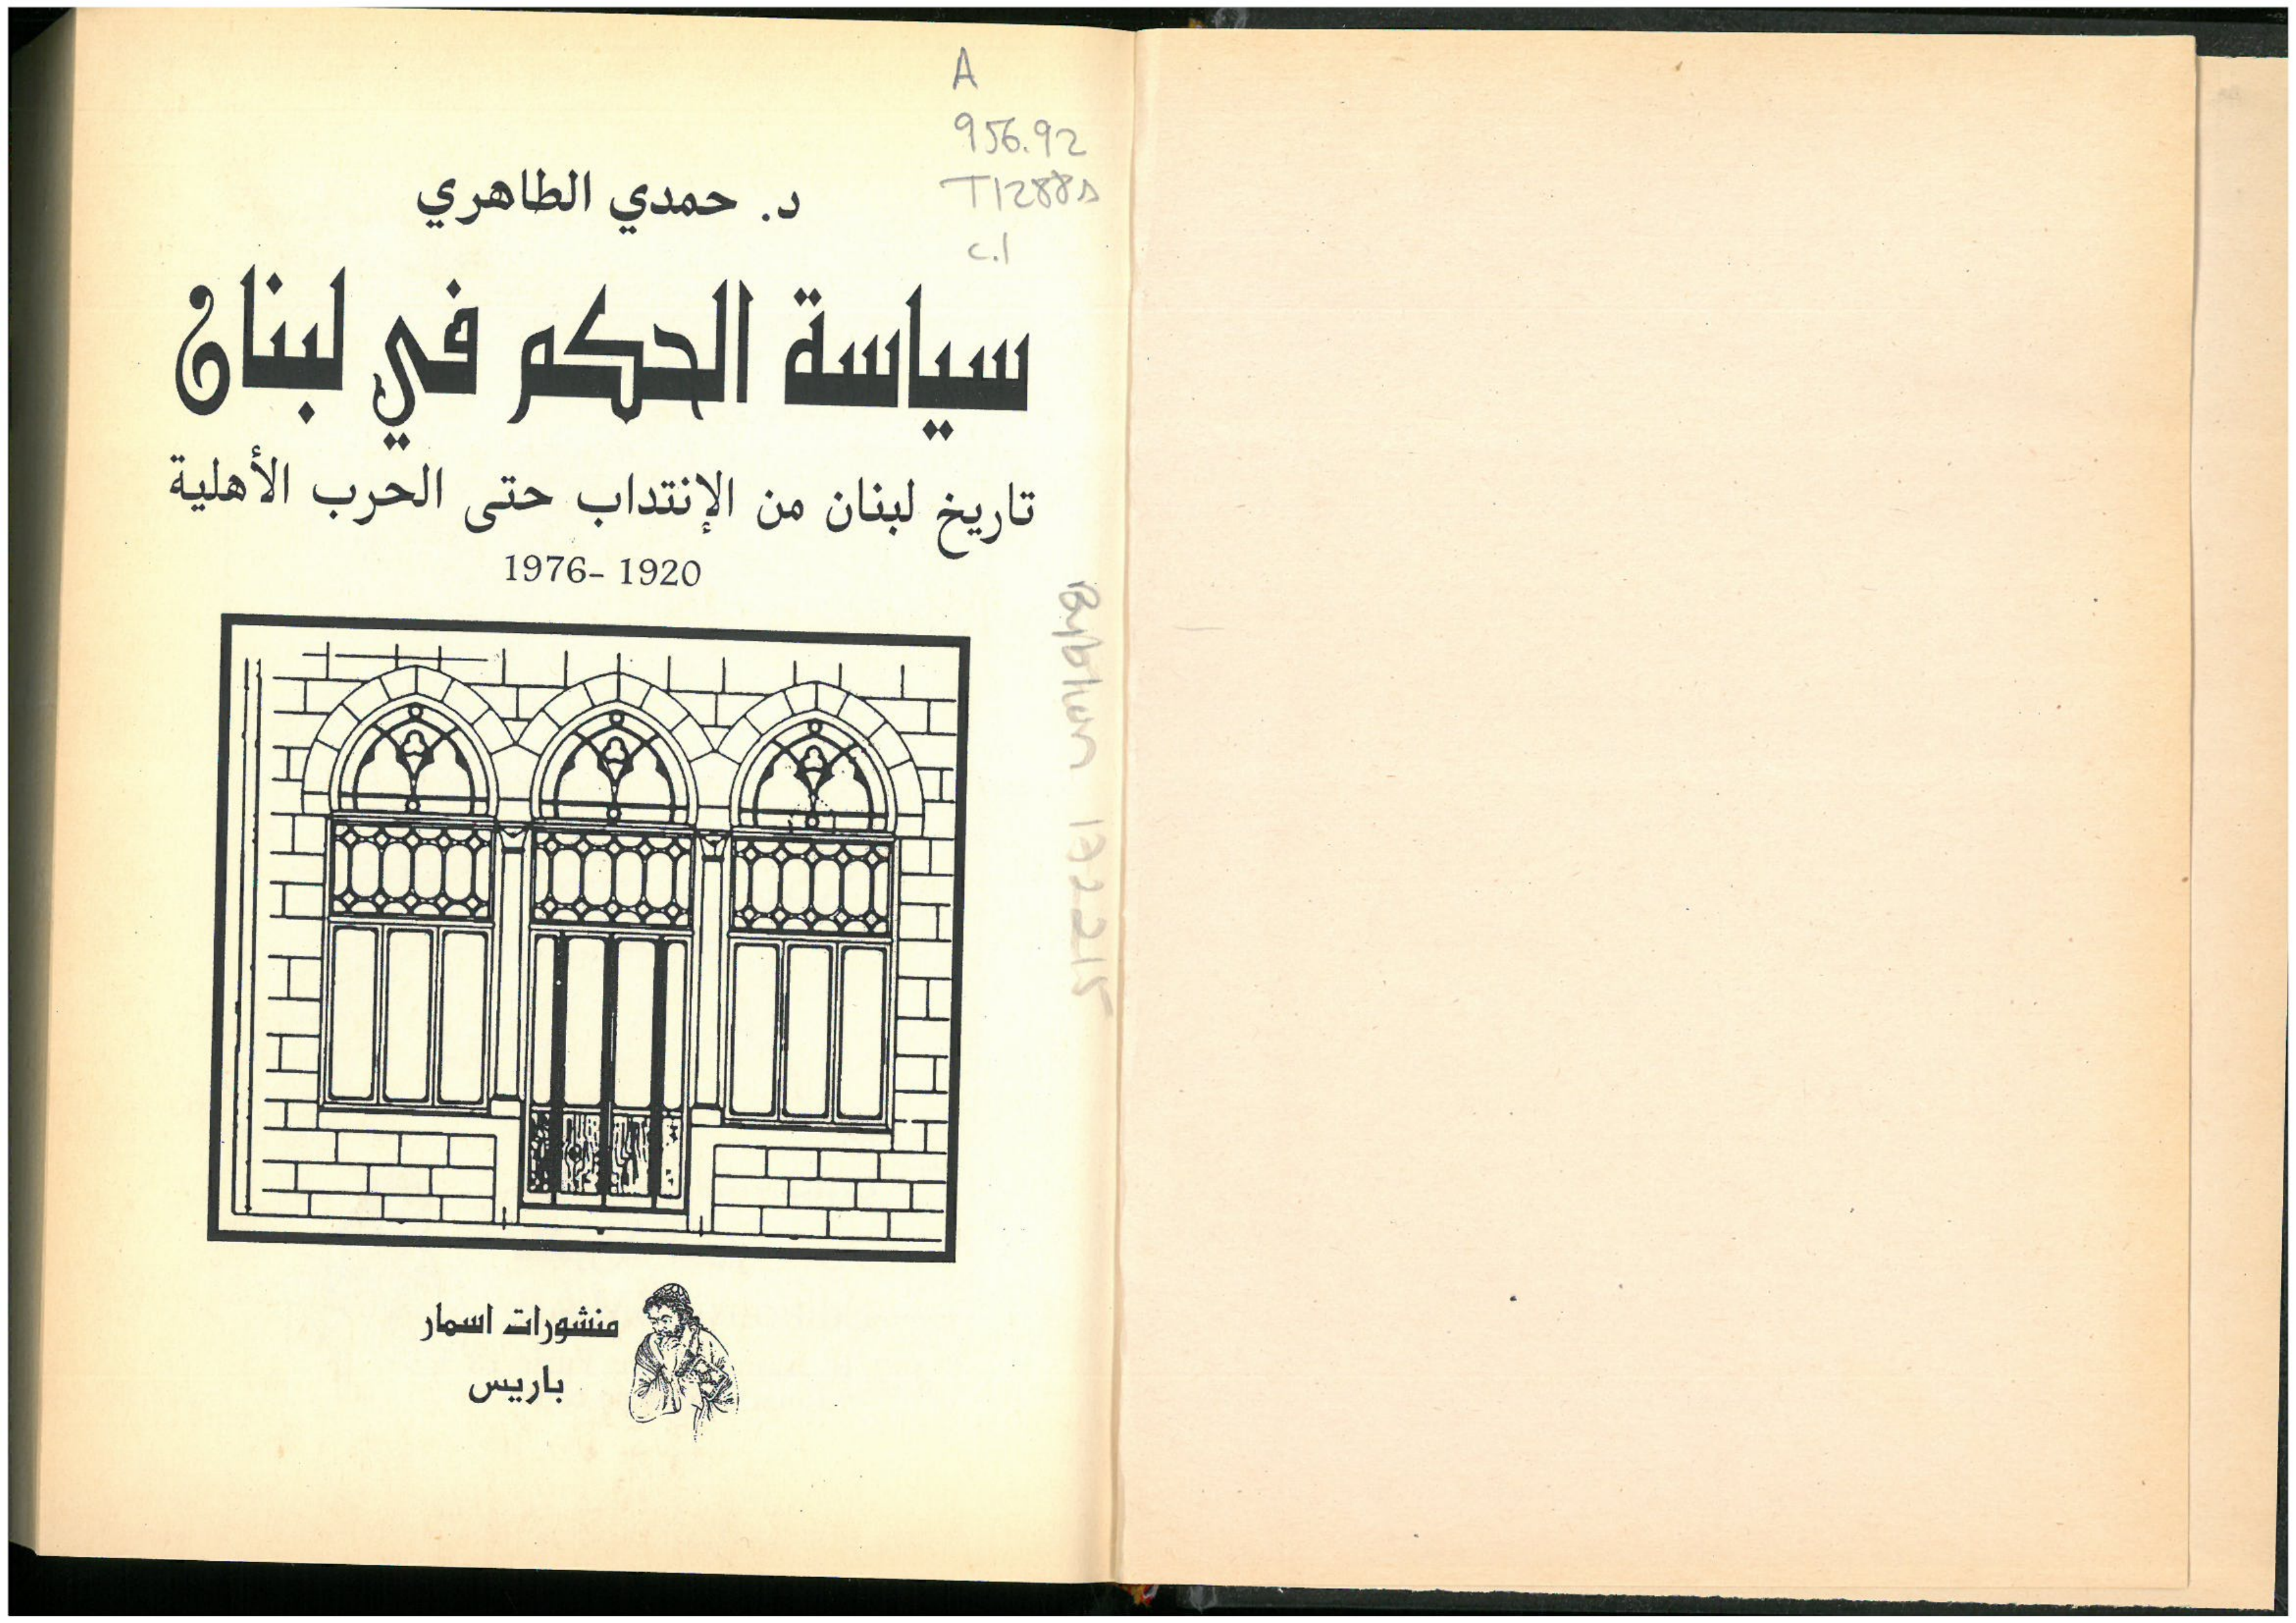 A
956.92
T1288s
c.1
د. حمدي الطاهري
سياسة الحكم في لبنان
تاريخ لبنان من الإنتداب حتى الحرب الأهلية
1920 -1976
منشورات اسمار
باريس